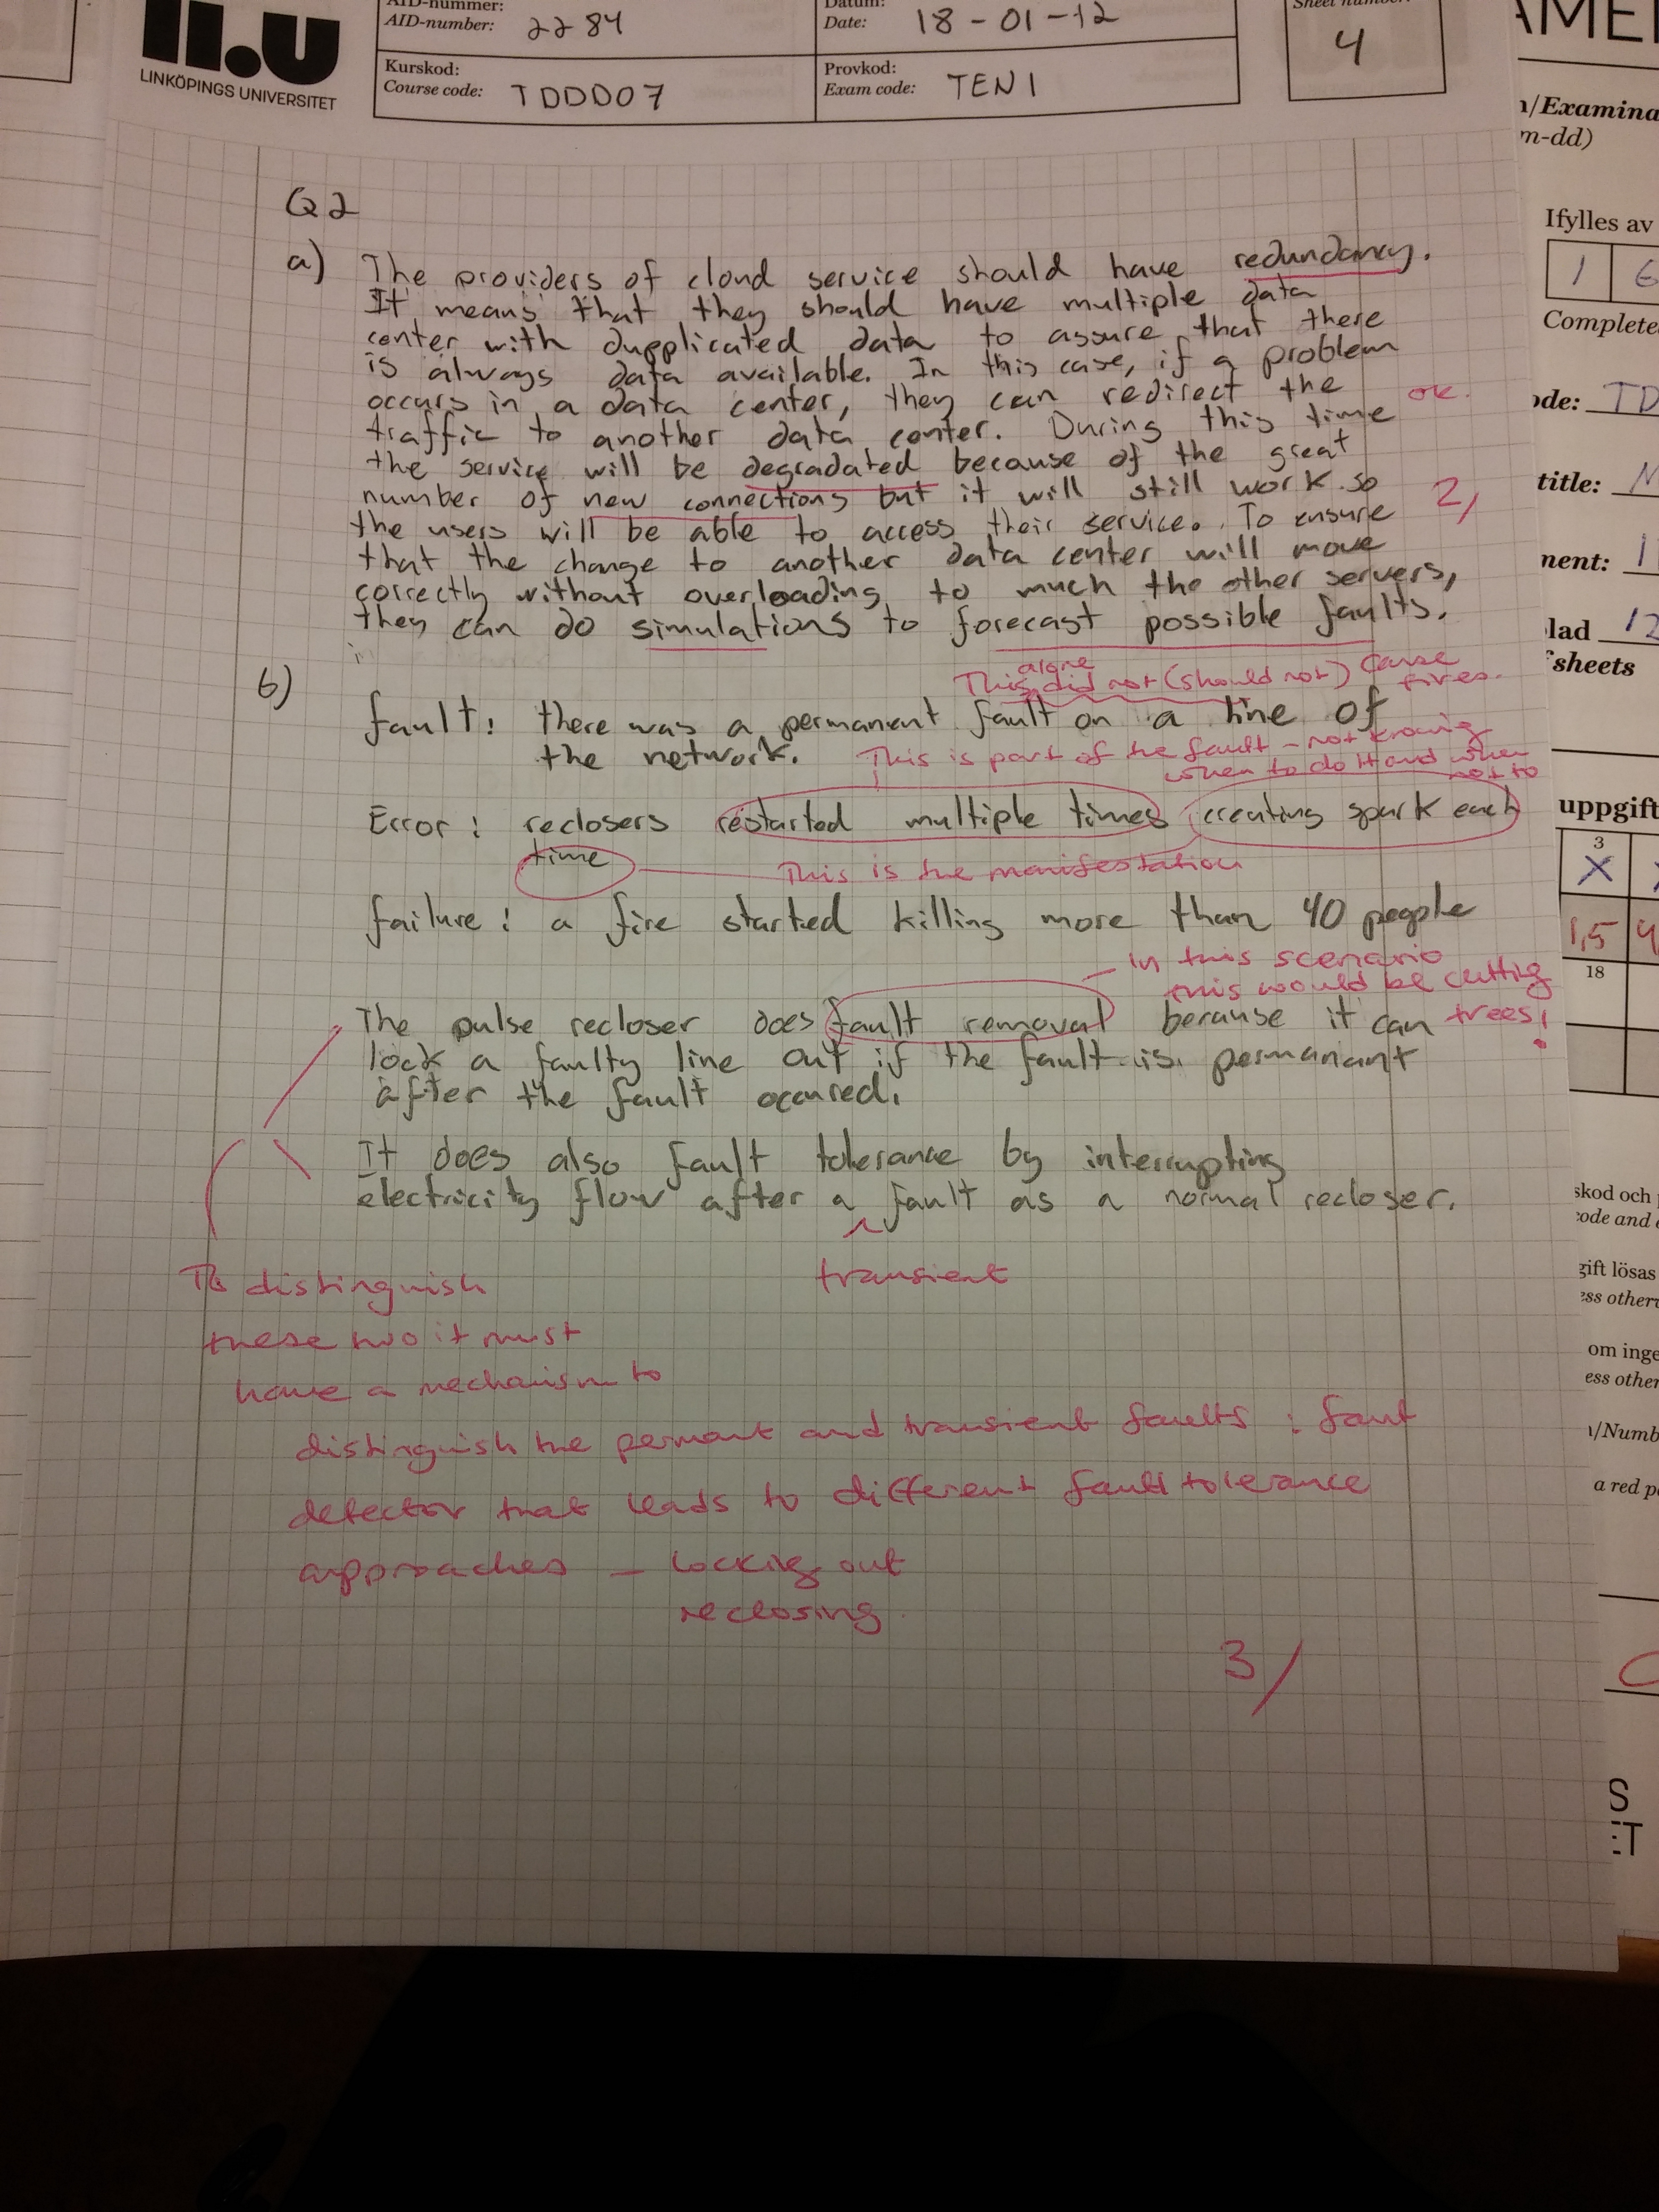 AID-nummer:
AID-number: 2284
Datum:
Date: 18-01-12
Sheet number:
4
LINKÖPINGS UNIVERSITET
Kurskod:
Course code: TDDD07
Provkod:
Exam code: TEN1
Q2
a) The providers of cloud service should have redundancy.
It means that they should have multiple data
center with dupplicated data to assure that there
is always data available. In this case, if a problem
occurs in a data center, they can redirect the
ok.
traffic to another data center. During this time
the service will be degradated because of the great
number of new connections but it will still work so
2,
the users will be able to access their service. To ensure
that the change to another data center will move
correctly without overloading to much the other servers,
they can do simulations to forecast possible faults.
b)
This alone did not (should not) cause fires.
fault: there was a permanent fault on a line of
the network.
This is part of the fault - not knowing
when to do it and when
not to
Error: reclosers restarted multiple times creating spark each
time
This is the manifestation
failure: a fire started killing more than 40 people
in this scenario
this would be cutting
trees!
The pulse recloser does fault removal because it can
lock a faulty line out if the fault is permanant
after the fault occured.
It does also fault tolerance by interrupting
electricity flow after a fault as a normal recloser.
transient
To distinguish
these two it must
have a mechanism to
distinguish the permant and transient faults: faut
detector that leads to different fault tolerance
approaches - locking out
reclosing
3/
n/Examina
m-dd)
Ifylles av
1 6
Complete
ode: TD
title:
ment:
lad 12
sheets
uppgift
3
X
1,5 4
18
skod och
ode and
gift lösas
ess otherw
om inge
ess other
n/Numb
a red p
S
ET